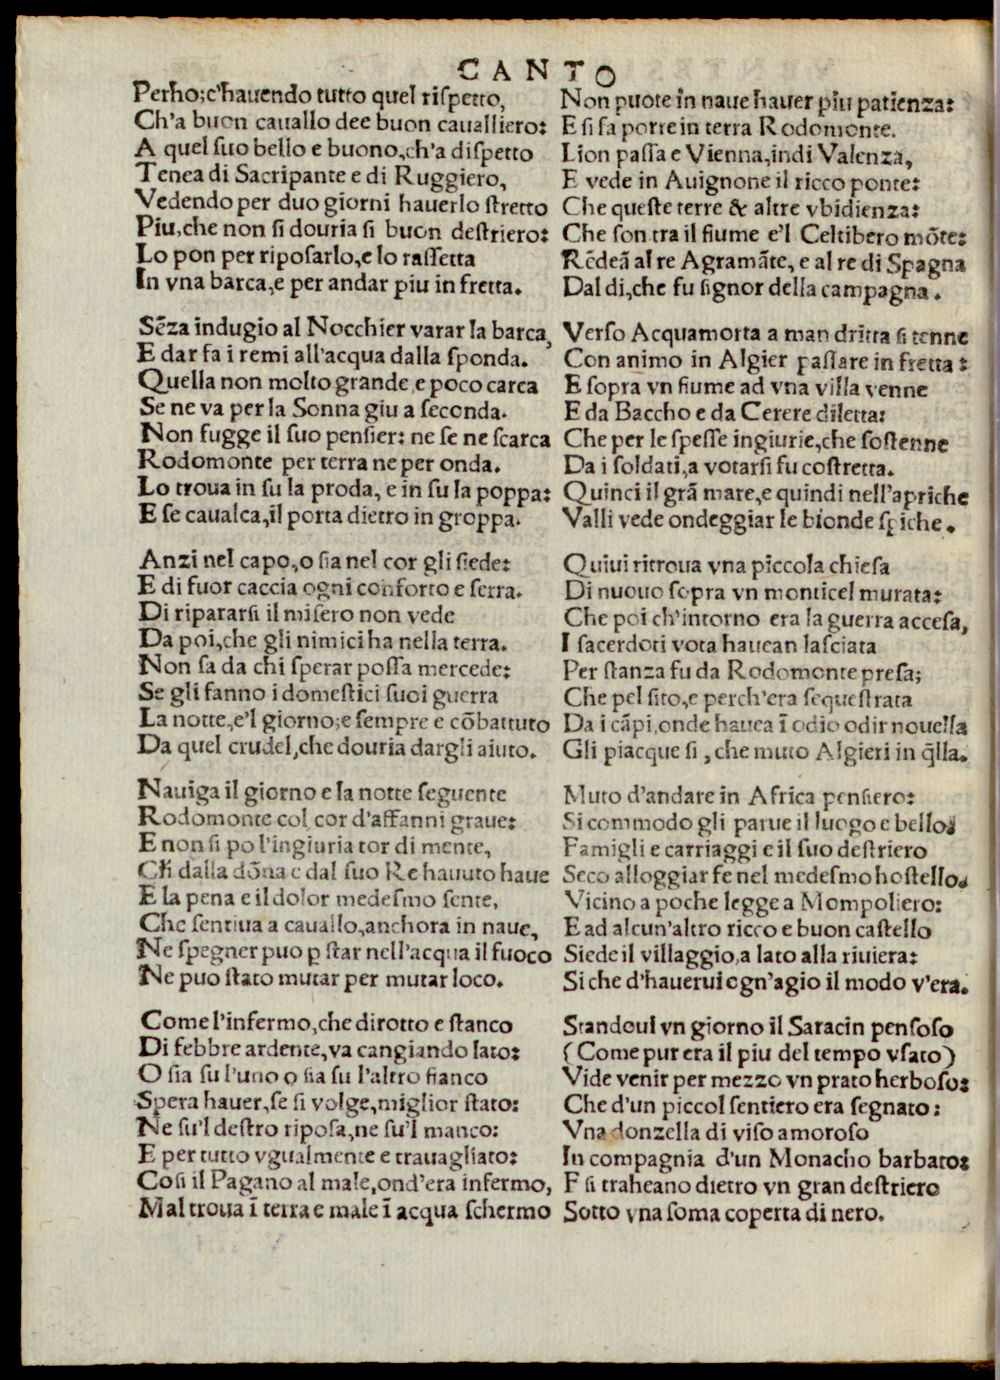 CANTO
Perho;c'hauendo tutto quel riſpetto,
Ch'a buon cauallo dee buon caualliero:
A quel ſuo bello e buono,ch'a diſpetto
Tenea di Sacripante e di Ruggiero,
Vedendo per duo giorni hauerlo ſtretto
Piu,che non ſi douria ſi buon deſtriero:
Lo pon per ripoſarlo,e lo raſſetta
In vna barca,e per andar piu in fretta.
Sēza indugio al Nocchier varar la barca,
E dar fa i remi all'acqua dalla ſponda.
Quella non molto grande,e poco carca
Se ne va per la Sonna giu a ſeconda.
Non fugge il ſuo penſier: ne ſe ne ſcarca
Rodomonte per terra ne per onda.
Lo troua in ſu la proda, e in ſu la poppa:
E ſe caualca,il porta dietro in groppa.
Anzi nel capo,o ſia nel cor gli ſiede:
E di fuor caccia ogni conforto e ſerra.
Di ripararſi il miſero non vede
Da poi,che gli nimici ha nella terra.
Non ſa da chi ſperar poſſa mercede:
Se gli fanno i domeſtici ſuoi guerra
La notte,e'l giorno;e ſempre e cōbattuto
Da quel crudel,che douria dargli aiuto.
Nauiga il giorno e la notte ſeguente
Rodomonte col cor d'affanni graue:
E non ſi po l'ingiuria tor di mente,
Ch̄ dalla dōna e dal ſuo Re hauuto haue
E la pena e il dolor medeſmo ſente,
Che ſentiua a cauallo,anchora in naue,
Ne ſpegner puo p ſtar nell'acqua il fuoco
Ne puo ſtato mutar per mutar loco.
Come l'infermo,che dirotto e ſtanco
Di febbre ardente,va cangiando lato:
O ſia ſu l'uno o ſia ſu l'altro fianco
Spera hauer,ſe ſi volge,miglior ſtato:
Ne ſu'l deſtro ripoſa,ne ſu'l manco:
E per tutto vgualmente e trauagliato:
Coſi il Pagano al male,ond'era infermo,
Mal troua ī terra e male ī acqua ſchermo
Non puote in naue hauer piu patienza:
E ſi fa porre in terra Rodomonte.
Lion paſſa e Vienna,indi Valenza,
E vede in Auignone il ricco ponte:
Che queſte terre & altre vbidienza:
Che ſon tra il fiume e'l Celtibero mōte:
Rēdeā al re Agramāte, e al re di Spagna
Dal di,che fu ſignor della campagna.
Verſo Acquamorta a man dritta ſi tenne
Con animo in Algier paſſare in fretta:
E ſopra vn fiume ad vna villa venne
E da Baccho e da Cerere diletta:
Che per le ſpeſſe ingiurie,che ſoſtenne
Da i ſoldati,a votarſi fu coſtretta.
Quinci il grā mare,e quindi nell'apriche
Valli vede ondeggiar le bionde ſpiche.
Quiui ritroua vna piccola chieſa
Di nuouo ſopra vn monticel murata:
Che poi ch'intorno era la guerra acceſa,
I ſacerdoti vota haucan laſciata
Per ſtanza fu da Rodomonte preſa;
Che pel ſito,e perch'era ſequeſtrata
Da i cāpi,onde hauea ī odio odir nouella
Gli piacque ſi,che muto Algieri in q̄lla.
Muto d'andare in Africa penſiero:
Si commodo gli parue il luogo e bello.
Famigli e carriaggi e il ſuo deſtriero
Seco alloggiar fe nel medeſmo hoſtello.
Vicino a poche legge a Mompoliero:
E ad alcun'altro ricco e buon caſtello
Siede il villaggio,a lato alla riuiera:
Si che d'hauerui ogn'agio il modo v'era.
Standoui vn giorno il Saracin penſoſo
(Come pur era il piu del tempo vſato)
Vide venir per mezzo vn prato herboſo:
Che d'un piccol ſentiero era ſegnato:
Vna donzella di viſo amoroſo
In compagnia d'un Monacho barbato:
E ſi traheano dietro vn gran deſtriero
Sotto vna ſoma coperta di nero.